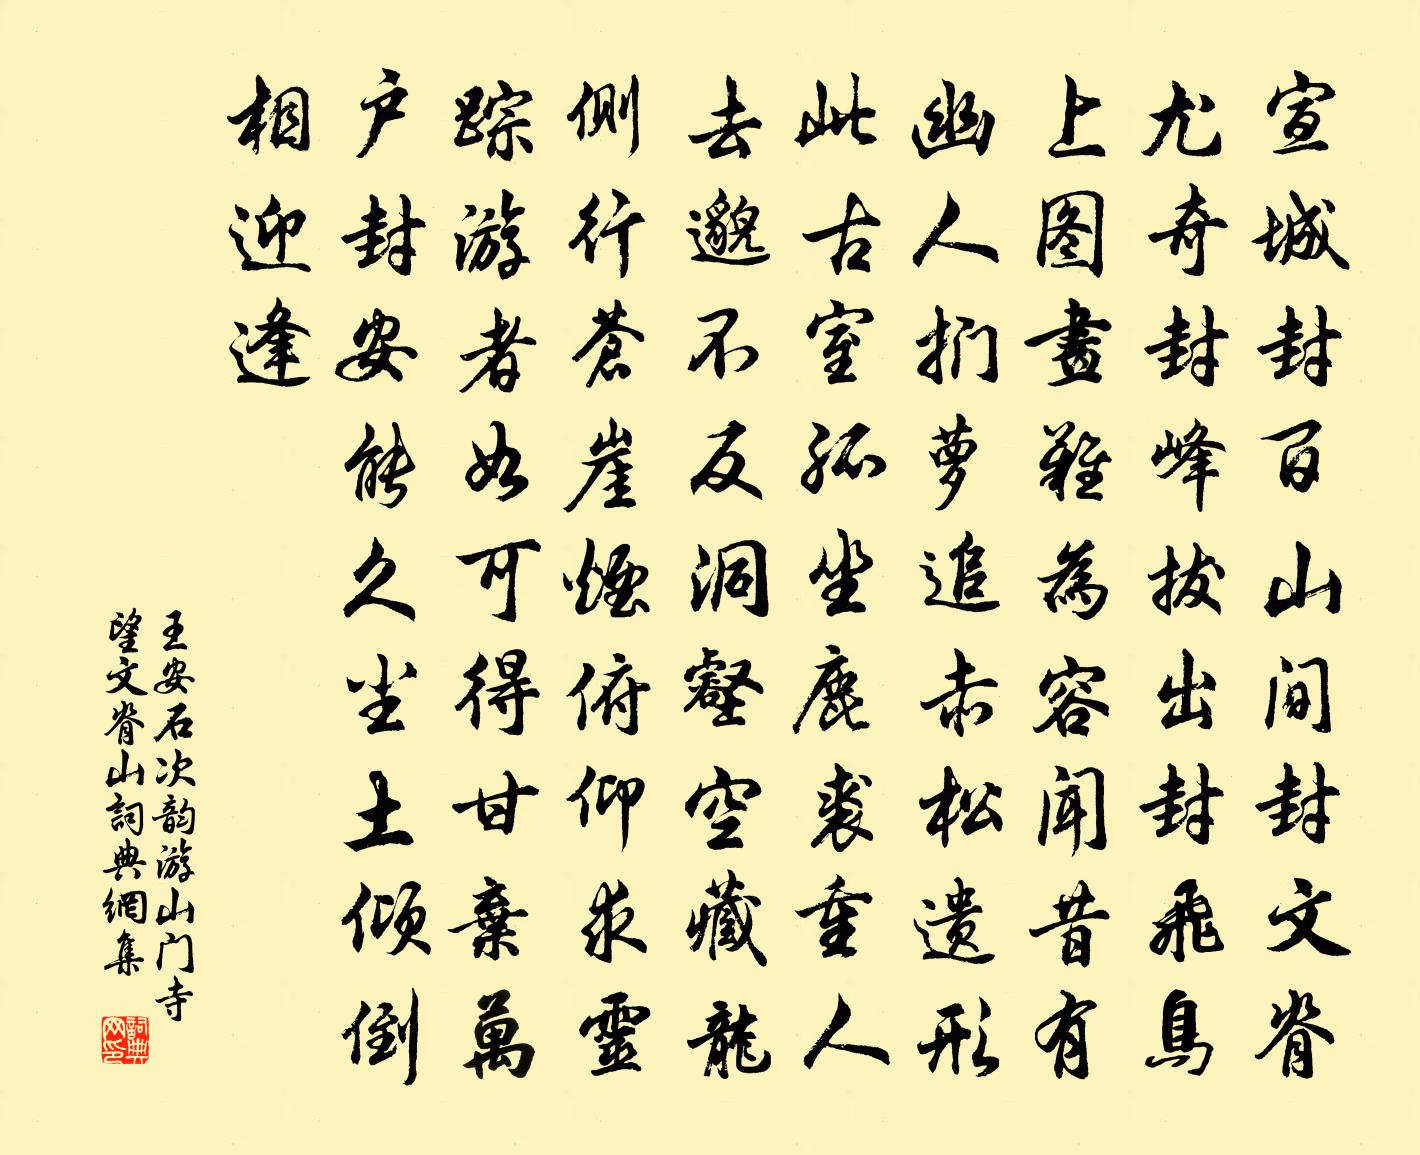 宣城封百山间封文脊
尤奇封峰拔出封飛鳥
上图畫難為容闻昔有
幽人扪萝追赤松遗形
此古室孤坐鹿裘重人
去邈不反洞壑空藏龍
侧行蒼崖煙俯仰求靈
踪游者如可得甘棄萬
户封安能久尘土倾倒
相迎逢
王安石次韵游山门寺
望文脊山詞典網集
詞典网印